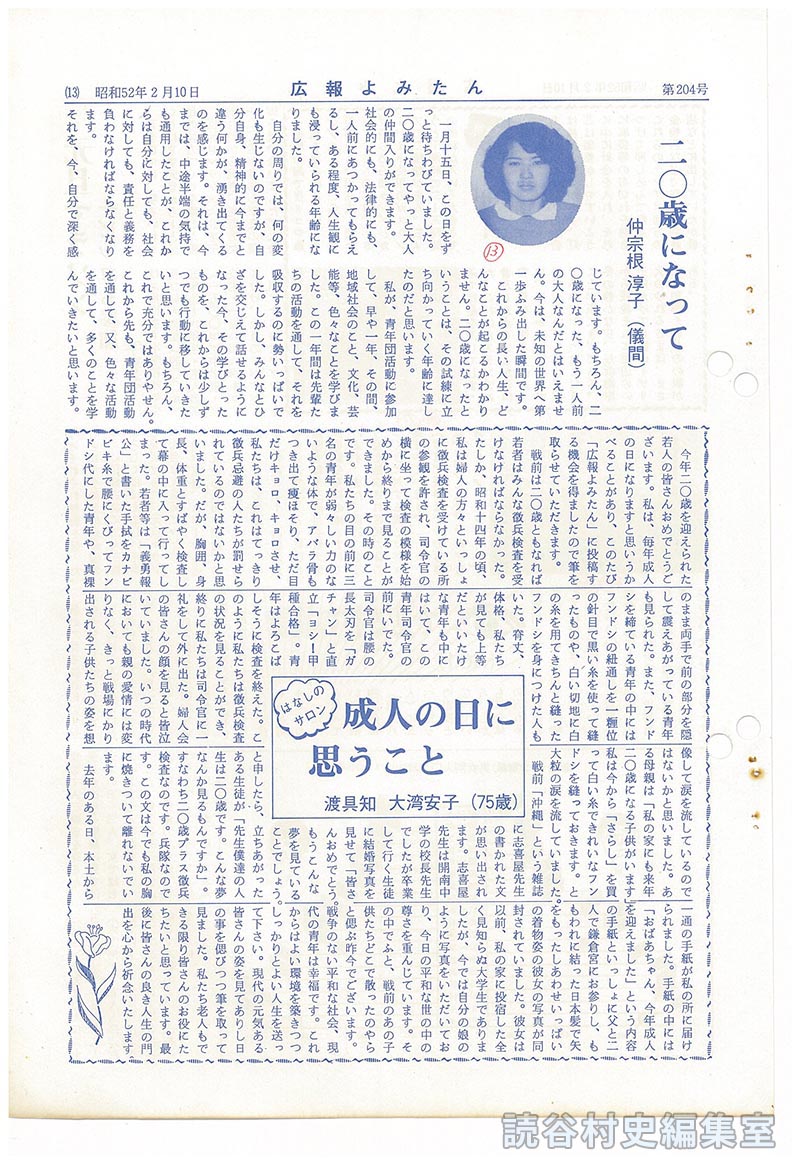 (13) 昭和52年2月10日
広報よみたん
第204号
二〇歳になって
仲宗根 淳子(儀間)
⑬
一月十五日、この日をず
っと待ちわびていました。
二〇歳になってやっと大人
の仲間入りができます。
社会的にも、法律的にも、
一人前にあつかってもらえ
るし、ある程度、人生観に
も浸っていられる年齢にな
りました。
自分の周りでは、何の変
化も生じないのですが、自
分自身、精神的に今までと
違う何かが、湧き出てくる
のを感じます。それは、今
までは、中途半端の気持で
も通用したことが、これか
らは自分に対しても、社会
に対しても、責任と義務を
負わなければならなくなり
ます。
それを、今、自分で深く感
じています。もちろん、二
〇歳になった、もう一人前
の大人なんだとはいえませ
ん。今は、未知の世界へ第
一歩ふみ出した瞬間です。
これからの長い人生、ど
んなことが起こるかわかり
ません。二〇歳になったと
いうことは、その試練に立
ち向かっていく年齢に達し
たのだと思います。
私が、青年団活動に参加
して、早や一年、その間、
地域社会のこと、文化、芸
能等、色々なことを学びま
した。この一年間は先輩た
ちの活動を通して、それを
吸収するのに勢いっぱいで
した。しかし、みんなとひ
ざを交じえて話せるように
なった今、その学びとった
ものを、これからは少しず
つでも行動に移していきた
いと思います。もちろん、
これで充分ではありやせん。
これから先も、青年団活動
を通して、又、色々な活動
を通して、多くのことを学
んでいきたいと思います。
はなしの
サロン
成人の日に
思うこと
渡具知 大湾安子(75歳)
今年二〇歳を迎えられた
若人の皆さんおめでとうご
ざいます。私は、毎年成人
の日になりますと思いうか
べることがあり、このたび
「広報よみたん」に投稿す
る機会を得ましたので筆を
取らせていただきます。
戦前は二〇歳ともなれば
若者はみんな徴兵検査を受
けなければならなかった。
たしか、昭和十四年の頃、
私は婦人の方々といっしょ
に徴兵検査を受けている所
の参観を許され、司令官の
横に坐って検査の模様を始
めから終りまで見ることが
できました。その時のこと
です。私たちの目の前に三
名の青年が弱々しい力のな
いような体で、アバラ骨も
つき出て痩ほそり、ただ目
だけキョロ、キョロさせ、
私たちは、これはてっきり
徴兵忌避の人たちが罰せら
れているのではないかと思
いました。だが、胸囲、身
長、体重とすばやく検査し
て幕の中に入って行ってし
まった。若者等は「義勇報
公」と書いた手拭をカナビ
ビキ糸で腰にくびってフン
ドシ代にした青年や、真裸
のまま両手で前の部分を隠
して震えあがっている青年
も見られた。また、フンド
シを締ている青年の中には
フンドシの紐通しを一糎位
の針目で黒い糸を使って縫
ったものや、白い切地に白
の糸を用てきちんと縫った
フンドシを身につけた人も
いた。脊丈、
体格、私たち
が見ても上等
だといいたけ
な青年も中に
はいて、この
青年司令官の
前にいでた。
司令官は腰の
長太刃を「ガ
チャン」と直
立「ヨシ!甲
種合格」。青
年はよろこば
しそうに検査を終えた。こ
のように私たちは徴兵検査
の状況を見ることができ、
終りに私たちは司令官に一
礼をして外に出た。婦人会
の皆さんの顔を見ると皆泣
いていました。いつの時代
においても親の愛情には変
りなく、きっと戦場にかり
出される子供たちの姿を想
像して涙を流しているので
はないかと思いました。あ
る母親は「私の家にも来年
二〇歳になる子供がいます」
私は今から「さらし」を買
って白い糸できれいなフン
ドシを縫っておきます。と
大粒の涙を流していました。
戦前「沖縄」という雑誌
に志喜屋先生
の書かれた文
が思い出され
ます。志喜屋
先生は開南中
学の校長先生
でしたが卒業
して行く生徒
に結婚写真を
見せて「皆さ
んおめでとう。
もうこんな
夢を見ている
ことでしょう。
と申したら、立ちあがった
ある生徒が「先生僕達の人
生は二〇歳です。こんな夢
なんか見るもんですか」。
すなわち二〇歳プラス徴兵
検査なのです。兵隊なので
す。この文は今でも私の胸
に焼きついて離れないでい
ます。
去年のある日、本土から
一通の手紙が私の所に届け
られました。手紙の中には
「おばあちゃん、今年成人
を迎えました」という内容
の手紙といっしょに父と二
人で鎌倉宮にお参りし、も
もわれに結った日本髪で矢
をもったしあわせいっぱい
の着物姿の彼女の写真が同
封されていました。彼女は
以前、私の家に投宿した全
く見知らぬ大学生でありま
したが、今では自分の娘の
ように写真をいただいてお
り、今日の平和な世の中の
尊さを重んじています。そ
の中でふと、戦前のあの子
供たちどこで散ったのやら
と偲ぶ昨今でございます。
戦争のない平和な社会、現
代の青年は幸福です。これ
からはよい環境を築きつつ
しっかりとよい人生を送っ
て下さい。現代の元気ある
皆さんの姿を見てありし日
の事を偲びつつ筆を取って
見ました。私たち老人もで
きる限り皆さんのお役にた
ちたいと思っています。最
後に皆さんの良き人生の門
出を心から祈念いたします。
読谷村史編集室